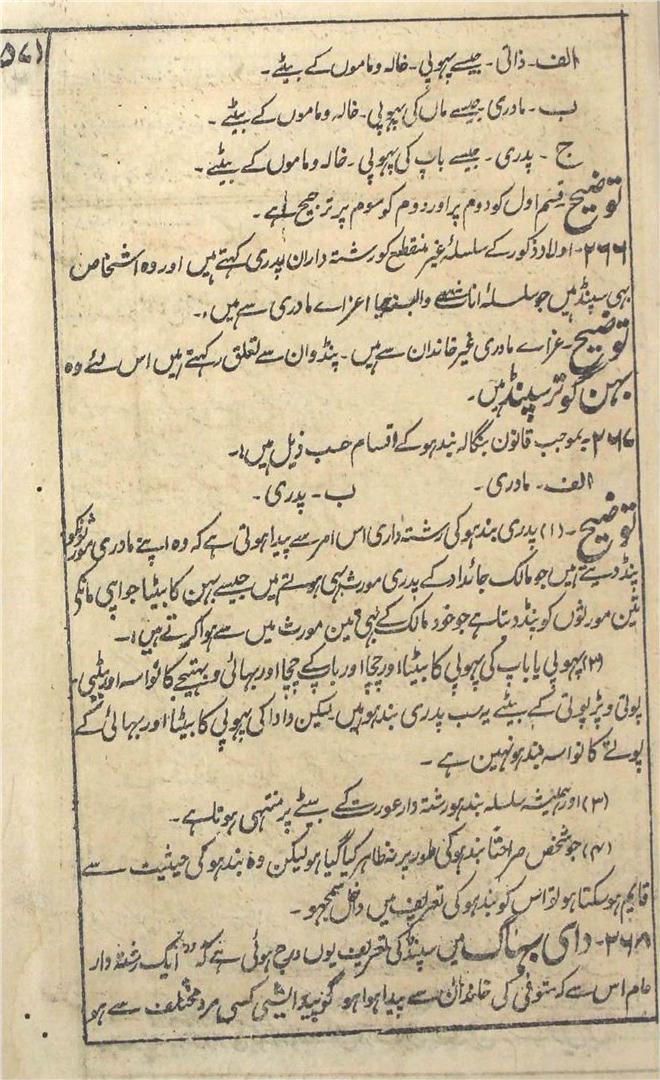 (۵۷)
الف۔ ذاتی۔ جیسے پہوپی۔ خالہ و ماموں کے بیٹے۔
ب۔ مادری جیسے ماں کی پہوپی۔ خالہ و ماموں کے بیٹے۔
ج۔ پدری۔ جیسے باپ کی پہوپی۔ خالہ و ماموں کے بیٹے۔
توضیح۔ قسم اول کو دوم پر اور دوم کو سوم پر ترجیح ہے۔
۲۶۶۔ اولاد ذکور کے سلسلۂ غیر منقطع کو رشتہ داران پدری کہتے ہیں اور وہ اشخاص
بہی سپنڈ ہیں جو سلسلۂ اناث سے یا اعزاے مادری سے ہیں۔
توضیح۔ عزاے مادری غیر خاندان سے ہیں۔ پنڈوان سے تعلق رکہتے ہیں اس لئے وہ
بہن گوتر سپنڈ ہیں۔
۲۶۷۔ بموجب قانون بنگالہ بندہو کے اقسام حسب ذیل ہیں۔
الف۔ مادری۔ ب۔ پدری۔
توضیح۔ (۱) پدری بندہو کی رشتہ داری اس امر سے پیدا ہوتی ہے کہ وہ اپنے مادری مورثوں کو
پنڈ دیتے ہیں جو مالک جائداد کے پدری مورث بہی ہوتے ہیں جیسے بہن کا بیٹا جو اپنی مانکی
تین مورثوں کو پنڈ دیتا ہے جو خود مالک کے بہی تین مورث میں سے ہوا کرتے ہیں۔
(۲) پہوپی یا باپ کی پہوپی کا بیٹا اور چچا اور باپ کے چچا اور بہائی و بہتیجے کا نواسہ اور بیٹی۔
پوتی و پڑپوتی کے بیٹے یہ سب پدری بندہو ہیں لیکن دادا کی پہوپی کا بیٹا اور بہائی کے
پوتے کا نواسہ بندہو نہین ہے۔
(۳) اور ہمیشہ سلسلہ بندہو رشتہ دار عورت کے بیٹے پر منتہی ہوتا ہے۔
(۴) جو شخص صراحتاً بندہو کی طور پر نہ ظاہر کیا گیا ہو لیکن وہ بندہو کی حیثیت سے
قایم ہو سکتا ہو تو اس کو بندہو کی تعریف میں داخل سمجہو۔
۲۶۸۔ دای بہاگ میں سپنڈ کی تعریف یوں درج ہوئی ہے کہ "ایک رشتہ دار
عام اس سے کہ متوفی کی خاندان سے پیدا ہوا ہو گو پیدائشی کسی مرد مختلف سے ہو